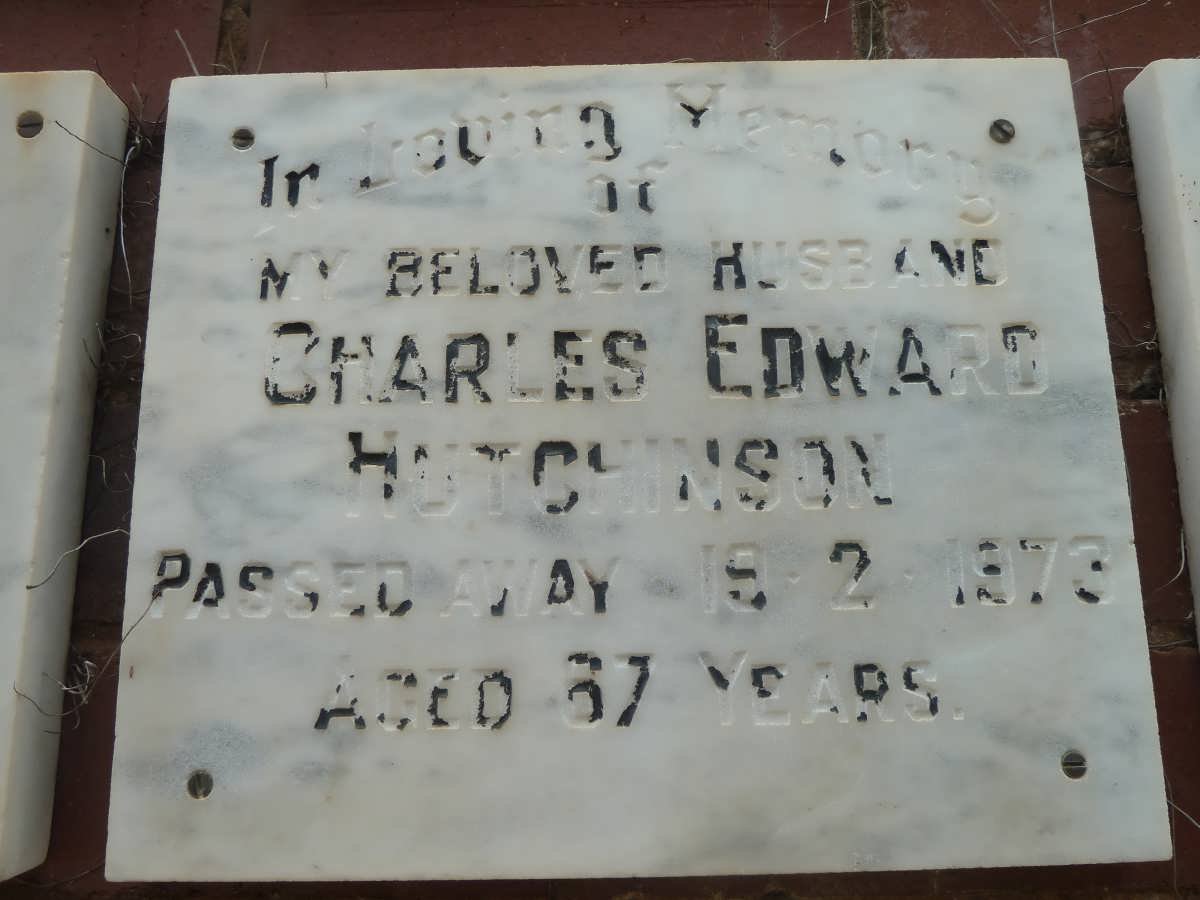 In Loving Memory
of
MY BELOVED HUSBAND
CHARLES EDWARD
HUTCHINSON
PASSED AWAY 19·2·1973
AGED 67 YEARS.